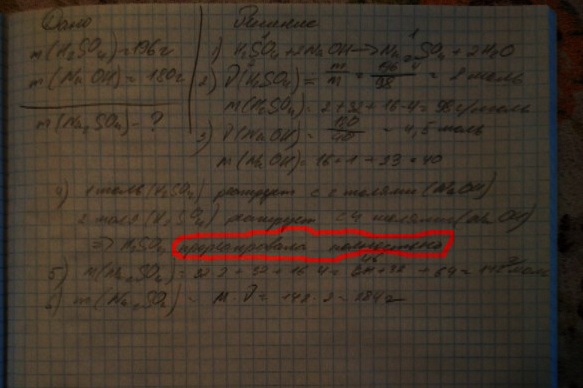 Дано
Решение
m(H₂SO₄)=196г
m(NaOH)=180г
m(Na₂SO₄)-?
1) H₂SO₄+2NaOH→Na₂SO₄+2H₂O
2) ν(H₂SO₄)=m/M=196/98=2 моль
M(H₂SO₄)=2+32+16·4=98г/моль
3) ν(NaOH)=180/40=4,5 моль
m(NaOH)=16+1+23=40
4) 1 моль (H₂SO₄) реагирует с 2 молями (NaOH)
2 моля (H₂SO₄) реагирует с 4 молями (NaOH)
⇒ H₂SO₄ прореагировала полностью
5) M(Na₂SO₄)=23·2+32+16·4=46+32+64=142г/моль
6) m(Na₂SO₄)=M·ν=142·2=284г